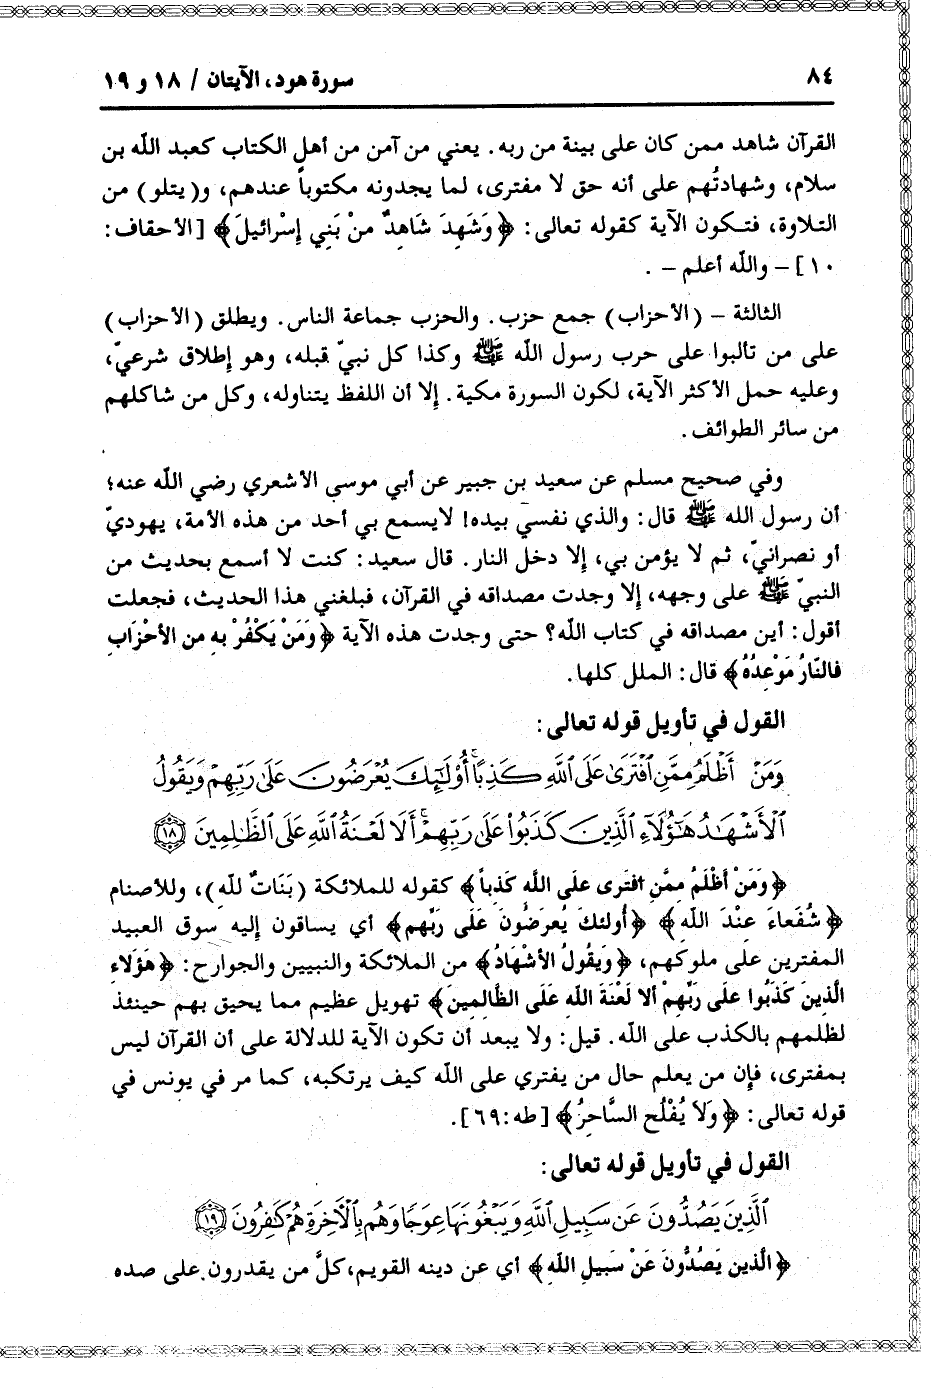 ٨٤
سورة هود، الآيتان / ١٨ و ١٩
القرآن شاهد ممن كان على بينة من ربه. يعني من آمن من أهل الكتاب كعبد اللّه بن
سلام، وشهادتُهم على أنه حق لا مفترى، لما يجدونه مكتوباً عندهم، و(يتلو) من
التلاوة، فتكون الآية كقوله تعالى: ﴿وَشَهِدَ شَاهِدٌ منْ بَنِي إِسْرائيلَ﴾ [الأحقاف:
١٠] – واللّه أعلم – .
الثالثة – (الأحزاب) جمع حزب. والحزب جماعة الناس. ويطلق (الأحزاب)
على من تألبوا على حرب رسول اللّه ﷺ وكذا كل نبيّ قبله، وهو إطلاق شرعيّ،
وعليه حمل الأكثر الآية، لكون السورة مكية. إلا أن اللفظ يتناوله، وكل من شاكلهم
من سائر الطوائف.
وفي صحيح مسلم عن سعيد بن جبير عن أبي موسى الأشعري رضي اللّه عنه؛
أن رسول الله ﷺ قال: والذي نفسي بيده! لايسمع بي أحد من هذه الأمة، يهوديّ
أو نصرانيّ، ثم لا يؤمن بي، إلا دخل النار. قال سعيد: كنت لا أسمع بحديث من
النبيّ ﷺ على وجهه، إلا وجدت مصداقه في القرآن، فبلغني هذا الحديث، فجعلت
أقول: أين مصداقه في كتاب الله؟ حتى وجدت هذه الآية ﴿وَمَنْ يَكْفُرْ به مِن الأحْزَاب
فالنَّارُ مَوْعِدُهُ﴾ قال: الملل كلها.
القول في تأويل قوله تعالى:
وَمَنْ أَظْلَمُ مِمَّنِ ٱفْتَرَىٰ عَلَى ٱللَّهِ كَذِبًا ۚ أُو۟لَٰٓئِكَ يُعْرَضُونَ عَلَىٰ رَبِّهِمْ وَيَقُولُ
ٱلْأَشْهَٰدُ هَٰٓؤُلَآءِ ٱلَّذِينَ كَذَبُوا۟ عَلَىٰ رَبِّهِمْ ۚ أَلَا لَعْنَةُ ٱللَّهِ عَلَى ٱلظَّٰلِمِينَ ١٨
﴿وَمَنْ أظْلَمُ ممَّنِ افْتَرى عَلَى اللَّه كَذِباً﴾ كقوله للملائكة (بَنَاتٌ للّهِ)، وللأصنام
﴿شُفَعاءَ عنْدَ اللَّه﴾ ﴿أُولئكَ يُعرَضُونَ عَلَى رَبِّهم﴾ أي يساقون إليه سوق العبيد
المفترين على ملوكهم، ﴿وَيقُولُ الأشْهَادُ﴾ من الملائكة والنبيين والجوارح: ﴿هَؤُلاءِ
الَّذِينَ كَذَبُوا عَلى رَبِّهِمْ ألا لَعْنَةَ اللَّهِ عَلَى الظَّالِمِينَ﴾ تهويل عظيم مما يحيق بهم حينئذ
لظلمهم بالكذب على اللّه. قيل: ولا يبعد أن تكون الآية للدلالة على أن القرآن ليس
بمفترى، فإن من يعلم حال من يفتري على اللّه كيف يرتكبه، كما مر في يونس في
قوله تعالى: ﴿وَلاَ يُفْلُح السَّاحرُ﴾ [طه:٦٩].
القول في تأويل قوله تعالى:
ٱلَّذِينَ يَصُدُّونَ عَن سَبِيلِ ٱللَّهِ وَيَبْغُونَهَا عِوَجًا وَهُم بِٱلْآخِرَةِ هُمْ كَٰفِرُونَ ١٩
﴿الَّذين يَصُدُّونَ عَنْ سَبيلِ اللَّهِ﴾ أي عن دينه القويم،كلَّ من يقدرون على صده